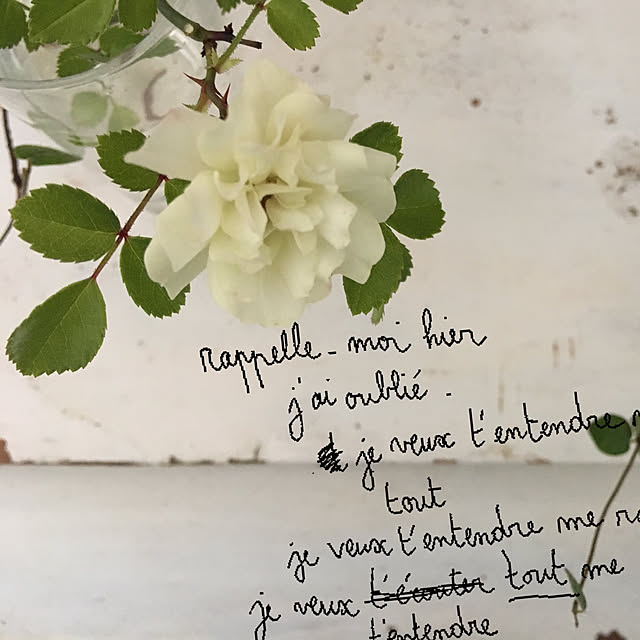 rappelle-moi hier
j'ai oublié.
je veux t'entendre
tout
je veux t'entendre me
je veux t'écouter tout me
t'entendre